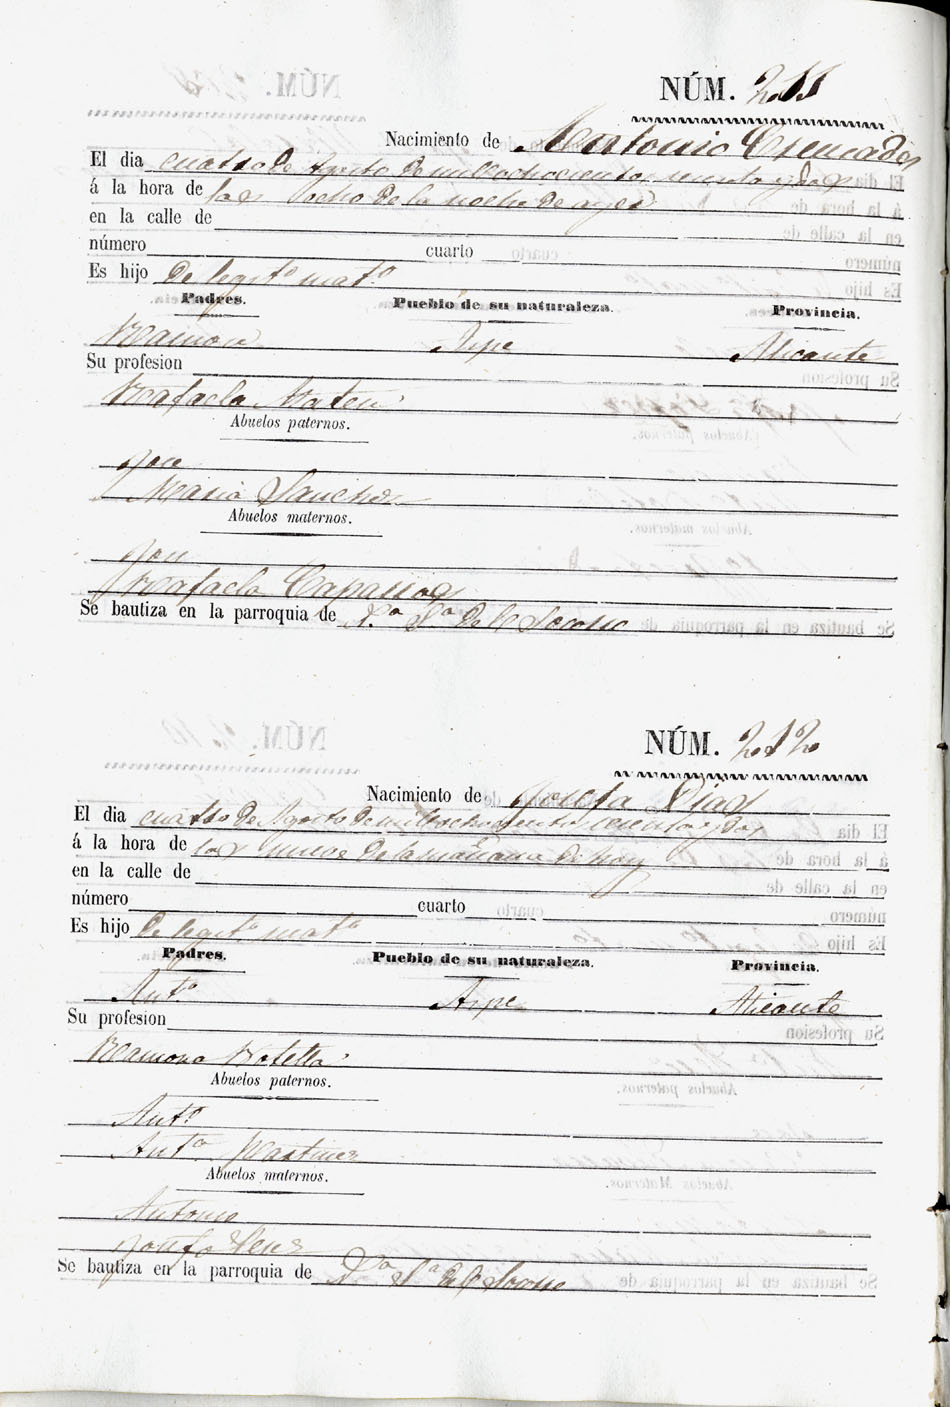 NÚM. 211
Nacimiento de Antonio Cremades
El dia cuatro de Agosto de mil ochocientos sesenta y dos
á la hora de las ocho de la noche de ayer
en la calle de
número cuarto
Es hijo de legit.º mat.º
Padres. Pueblo de su naturaleza. Provincia.
Ramon Aspe Alicante
Su profesion
Rafaela Mateu
Abuelos paternos.
Jose
Maria Sanchez
Abuelos maternos.
Jose
Rafaela
Se bautiza en la parroquia de N.ª S.ª del Socorro
NÚM. 212
Nacimiento de Josefa Diaz
El dia cuatro de Agosto de mil ochocientos sesenta y dos
á la hora de las nueve de la mañana de hoy
en la calle de
número cuarto
Es hijo de legit.º mat.º
Padres. Pueblo de su naturaleza. Provincia.
Ant.º Aspe Alicante
Su profesion
Ramona Botella
Abuelos paternos.
Ant.º
Ant.ª Martinez
Abuelos maternos.
Antonio
Josefa
Se bautiza en la parroquia de N.ª S.ª del Socorro